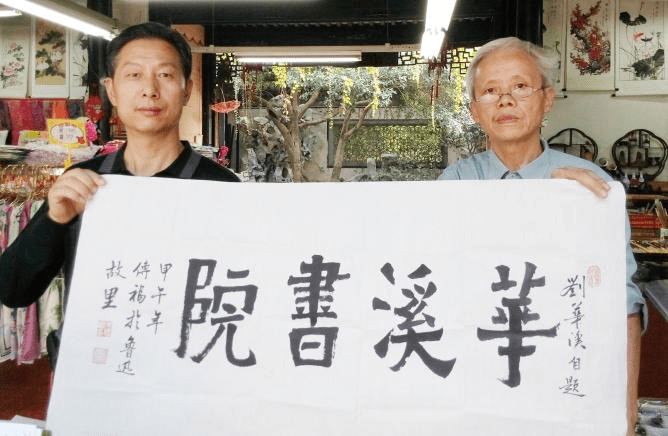 劉華溪自題
華溪書院
甲午年
傅福於魯迅
故里